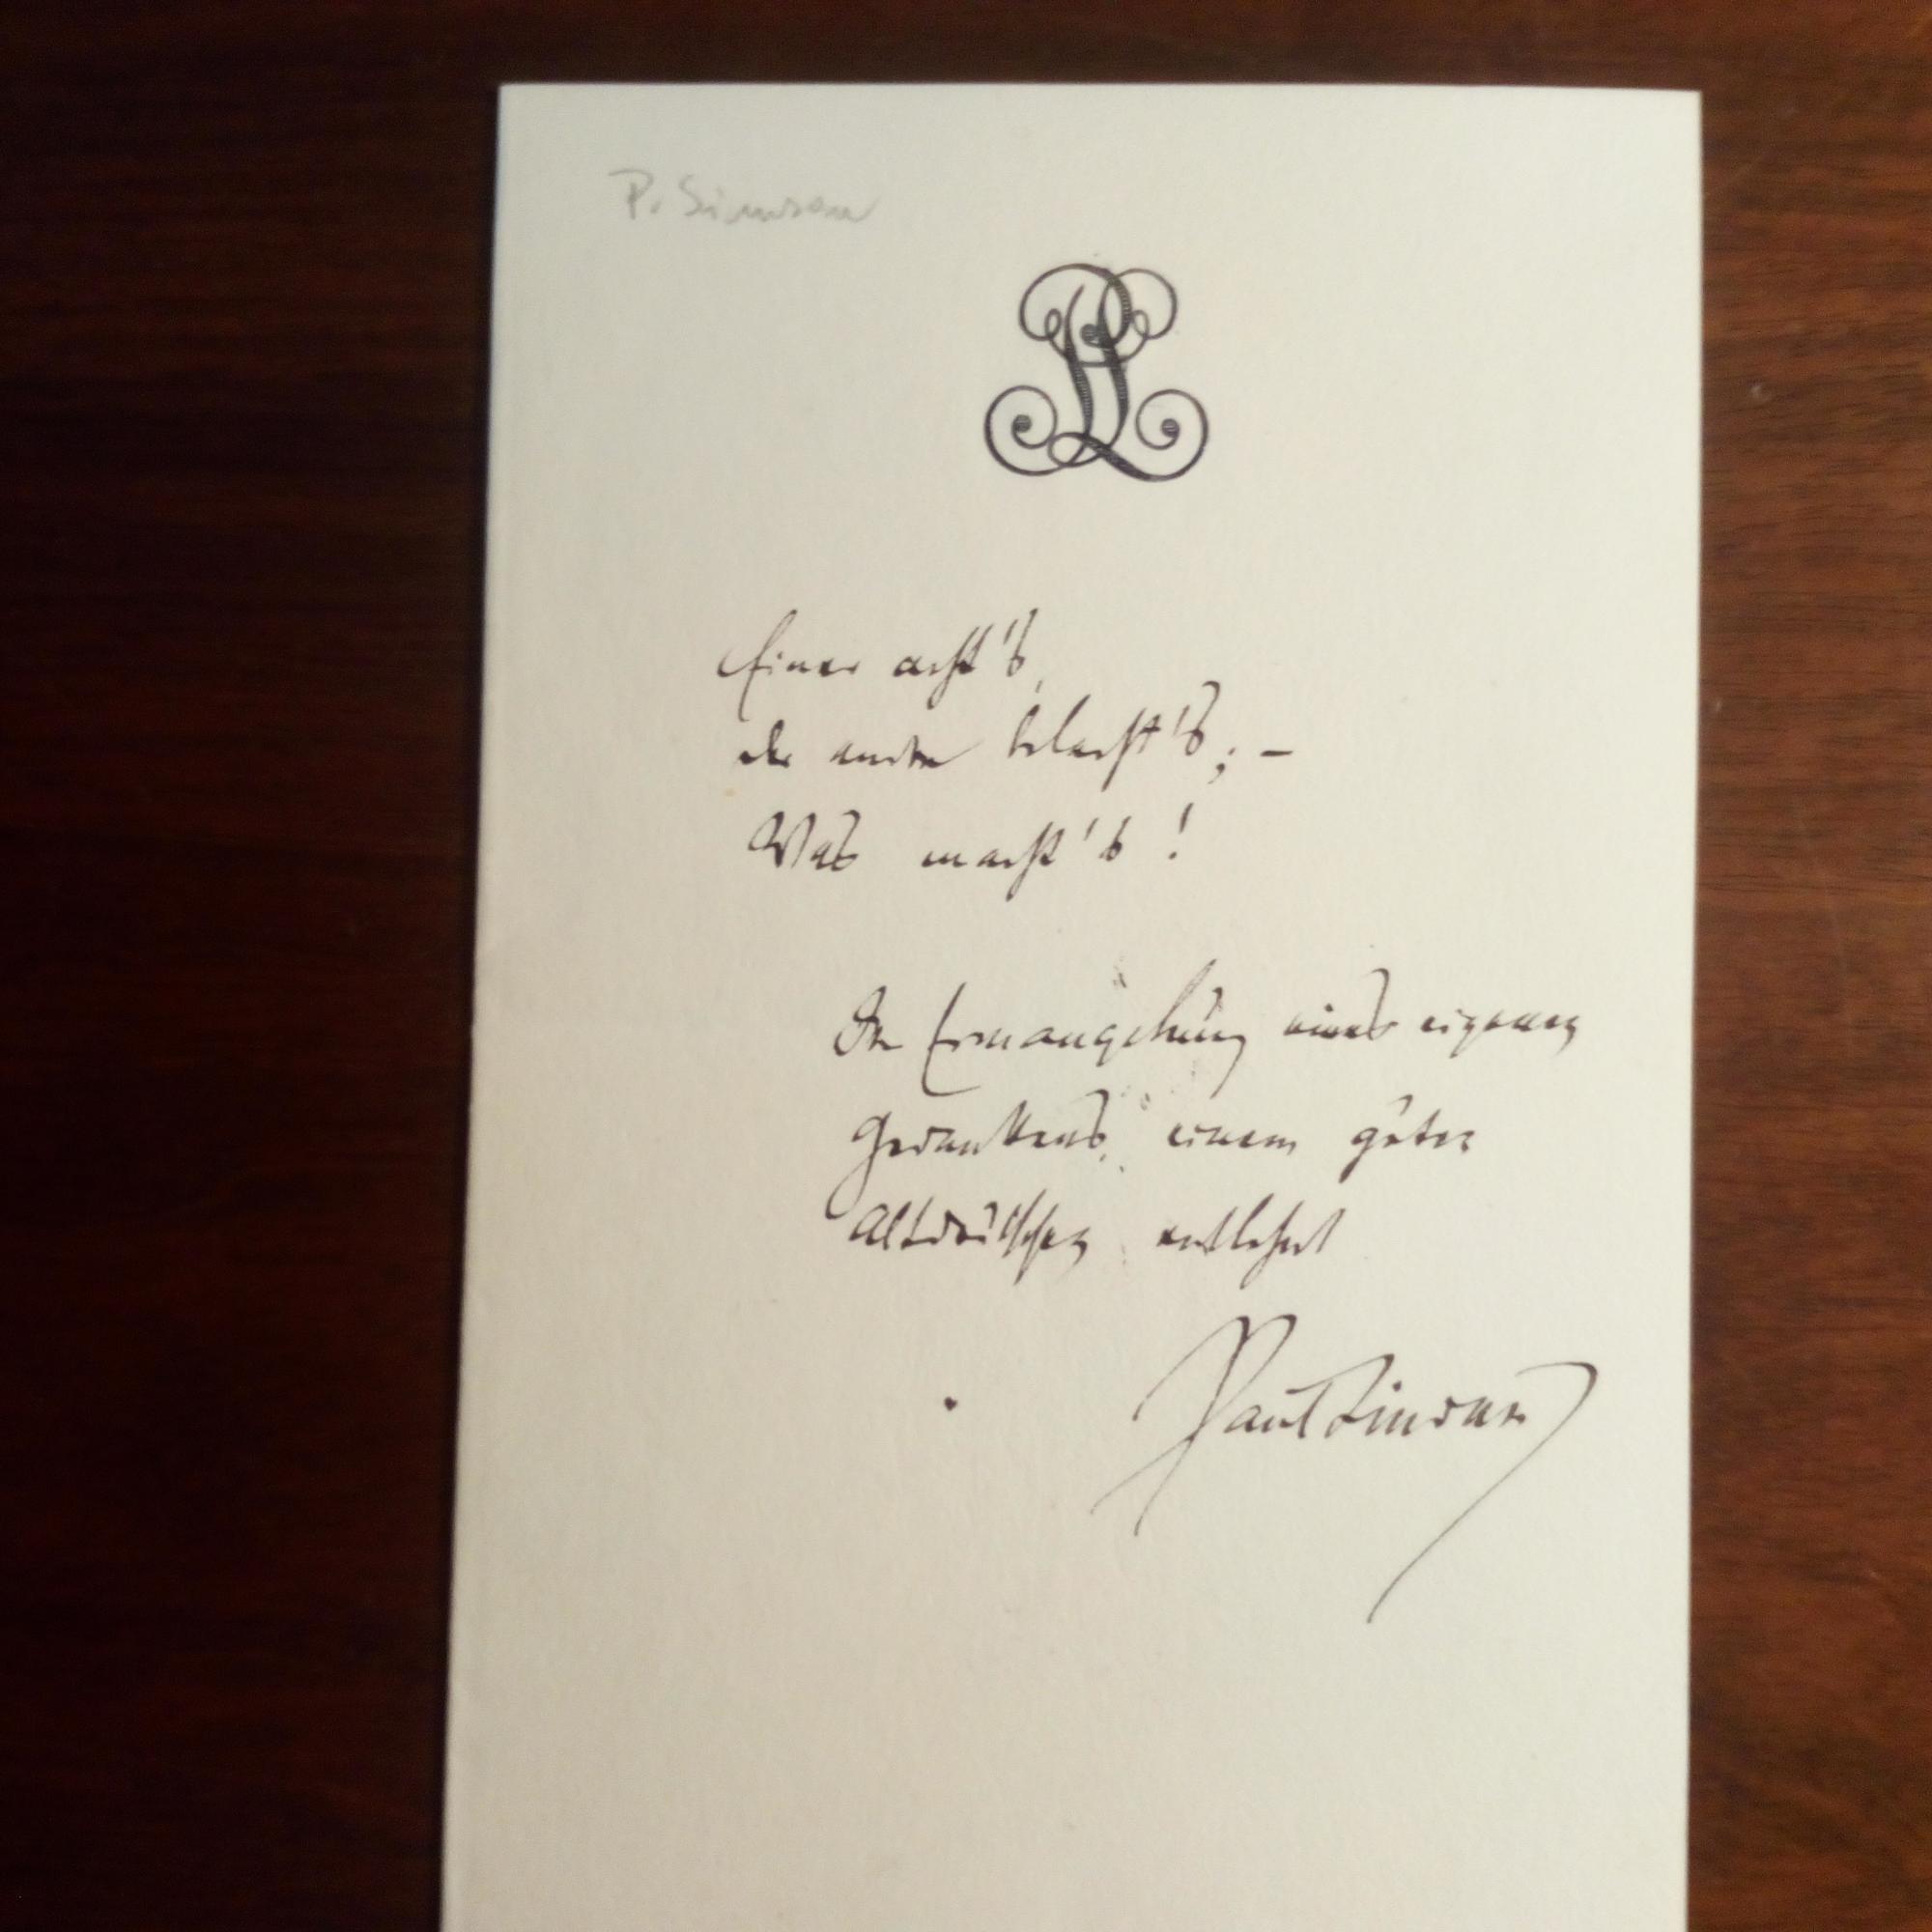 P. Simson
PL
Einer acht's,
der andre belacht's; –
Was macht's!
In Ermangelung eines eigenen
Gedankens, einem guten
altdeutschen entlehnt
Paul Lindau